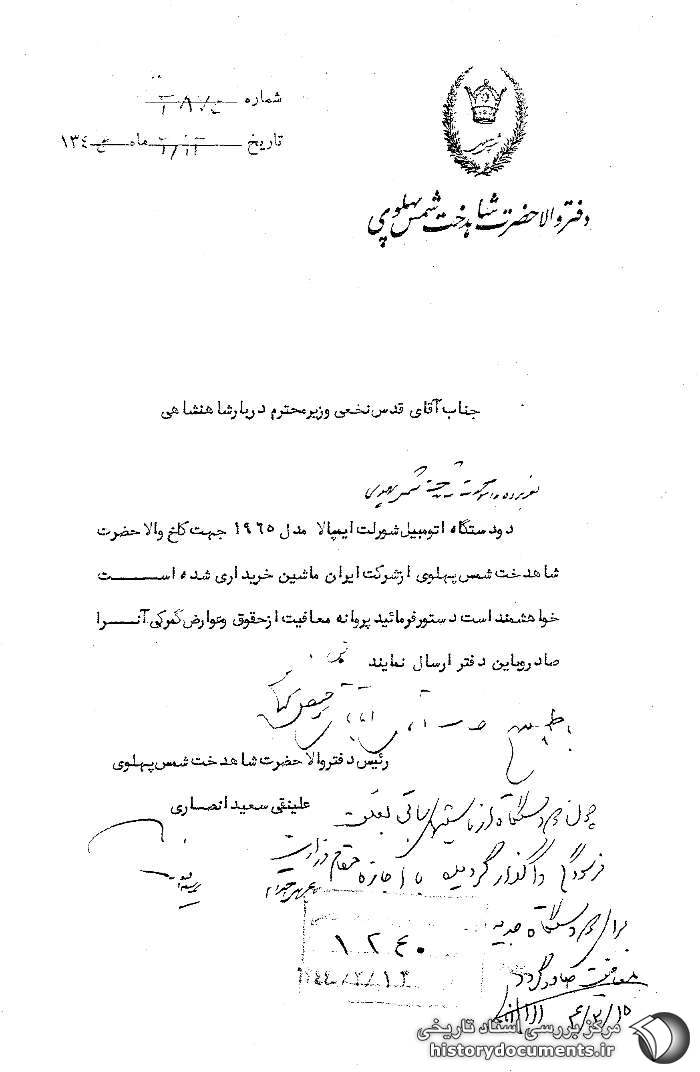 شماره ۲۸۷٤
تاریخ ۲/۱۲ ماه ۱۳٤٤
دفتر والاحضرت شاهدخت شمس پهلوی
جناب آقای قدس نخعی وزیر محترم دربار شاهنشاهی
دو دستگاه اتومبیل شورلت ایمپالا مدل ۱۹٦٥ جهت کاخ والاحضرت
شاهدخت شمس پهلوی از شرکت ایران ماشین خریداری شده است
خواهشمند است دستور فرمائید پروانه معافیت از حقوق و عوارض گمرکی آنرا
صادر و باین دفتر ارسال نمایند
رئیس دفتر والاحضرت شاهدخت شمس پهلوی
علینقی سعید انصاری
چون دو دستگاه از ماشینهای باقی بعلت
فرسودگی واگذار گردیده با اجازه مقام وزارت
برای دو دستگاه جدید
معافیت صادر گردد
٤٤/۲/۱٥
۱۲٤۰
۱۳٤٤/۲/۱۳
مرکز بررسی اسناد تاریخی
historydocuments.ir